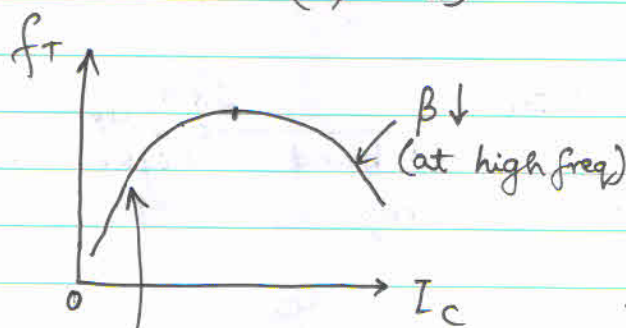 f_T
β ↓
(at high freq)
0
I_C